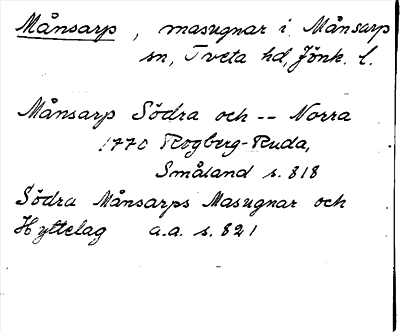 Månsarp, masugnar i Månsarp
sn, Tveta hd, Jönk. l.
Månsarp Södra och -- Norra
1770 Rogberg-Ruda,
Småland s. 818
Södra Månsarps Masugnar och
Hyttelag a.a. s. 821